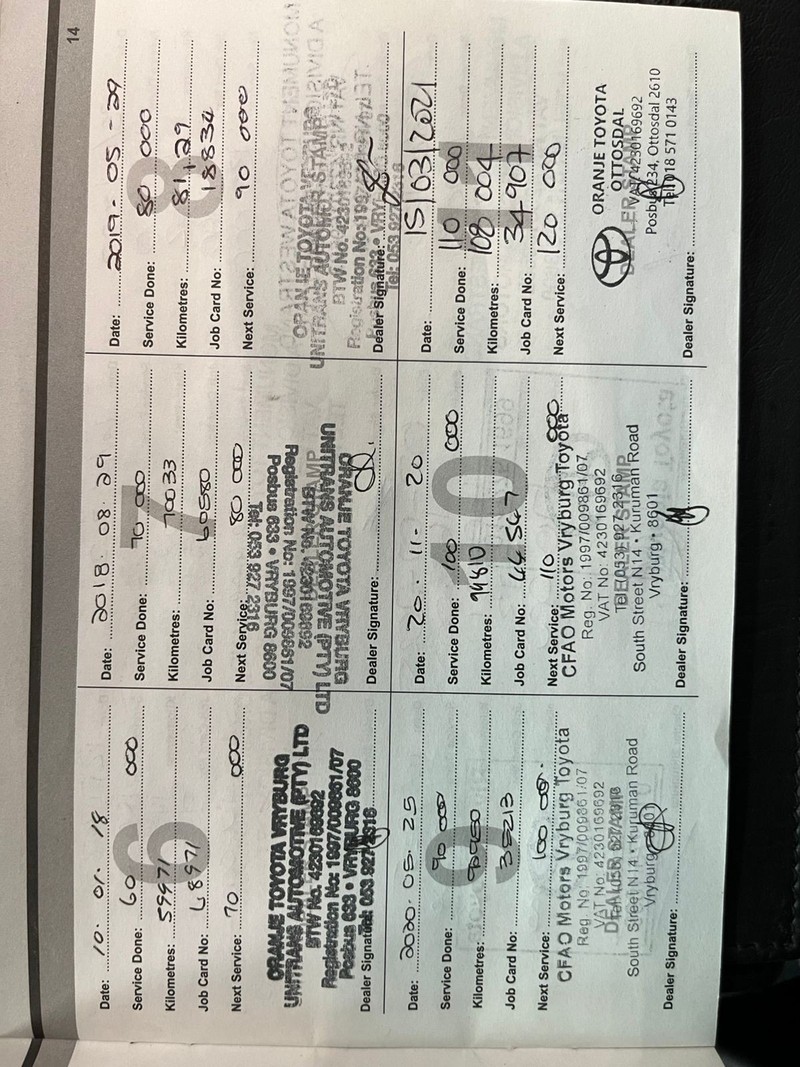 14
Date: 10. 01. 18
6
Service Done: 60 000
Kilometres: 59971
Job Card No: 68971
Next Service: 70 000
ORANJE TOYOTA VRYBURG
UNITRANS AUTOMOTIVE (PTY) LTD
BTW No. 4230169692
Registration No: 1997/009861/07
Posbus 633 • VRYBURG 8600
Tel: 053 927 2316
Dealer Signature:
Date: 2018. 08. 29
7
Service Done: 70 000
Kilometres: 70033
Job Card No: 60580
Next Service: 80 000
ORANJE TOYOTA VRYBURG
UNITRANS AUTOMOTIVE (PTY) LTD
BTW No. 4230169692
Registration No: 1997/009861/07
Posbus 633 • VRYBURG 8600
Tel: 053 927 2316
Dealer Signature:
Date: 2019 - 05 - 29
8
Service Done: 80 000
Kilometres: 81129
Job Card No: 18834
Next Service: 90 000
ORANJE TOYOTA VRYBURG
UNITRANS AUTOMOTIVE
DEALER STAMP
BTW No. 4230169692
Registration No: 1997
Tel: 053 927
Dealer Signature:
Date: 2020. 05. 25
9
Service Done: 90 000
Kilometres:
Job Card No: 35213
Next Service: 100 000
CFAO Motors Vryburg Toyota
Reg. No. 1997/009861/07
VAT No. 4230169692
DEALER STAMP
South Street N14 • Kuruman Road
Vryburg • 8601
Dealer Signature:
Date: 20. 11. 20
10
Service Done: 100 000
Kilometres: 99810
Job Card No: 44547
Next Service: 110 000
CFAO Motors Vryburg Toyota
Reg. No.: 1997/009861/07
VAT No: 4230169692
DEALER STAMP
Tel: (053) 927 2316
South Street N14 • Kuruman Road
Vryburg • 8601
Dealer Signature:
Date: 15/03/2021
11
Service Done: 110 000
Kilometres: 108 004
Job Card No: 34907
Next Service: 120 000
ORANJE TOYOTA
OTTOSDAL
DEALER STAMP
VAT: 4230169692
Posbus 234, Ottosdal 2610
Tel: 018 571 0143
Dealer Signature: